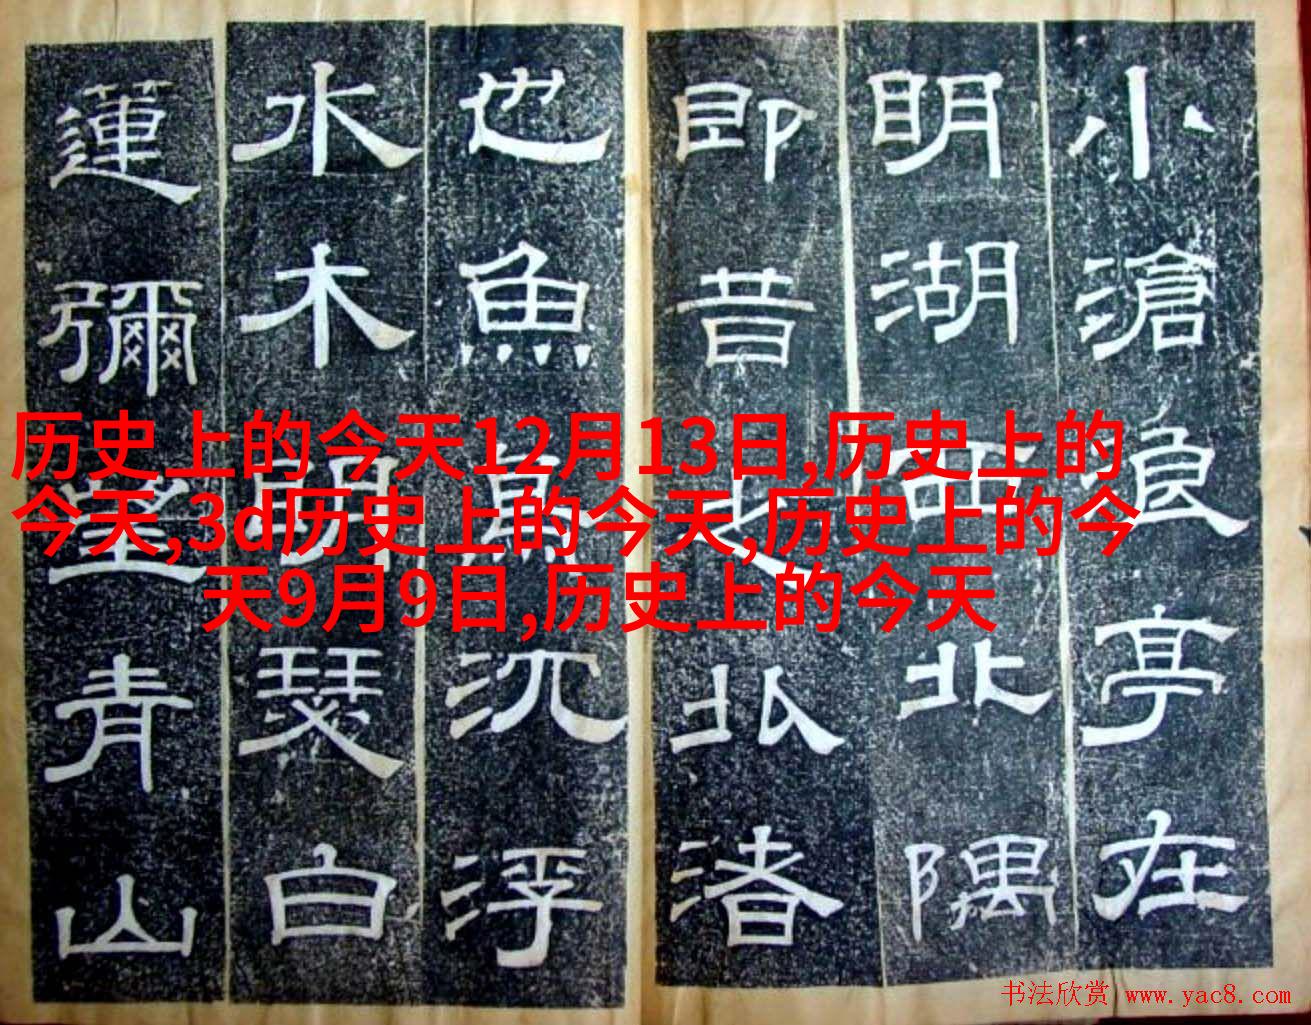 小滄浪亭在
明湖西北隅
即昔之北渚
也魚鳥沉浮
水木明瑟白
蓮彌望青山
历史上的今天12月13日,历史上的
今天,3d历史上的今天,历史上的今
天9月9日,历史上的今天
书法欣赏 www.yac8.com